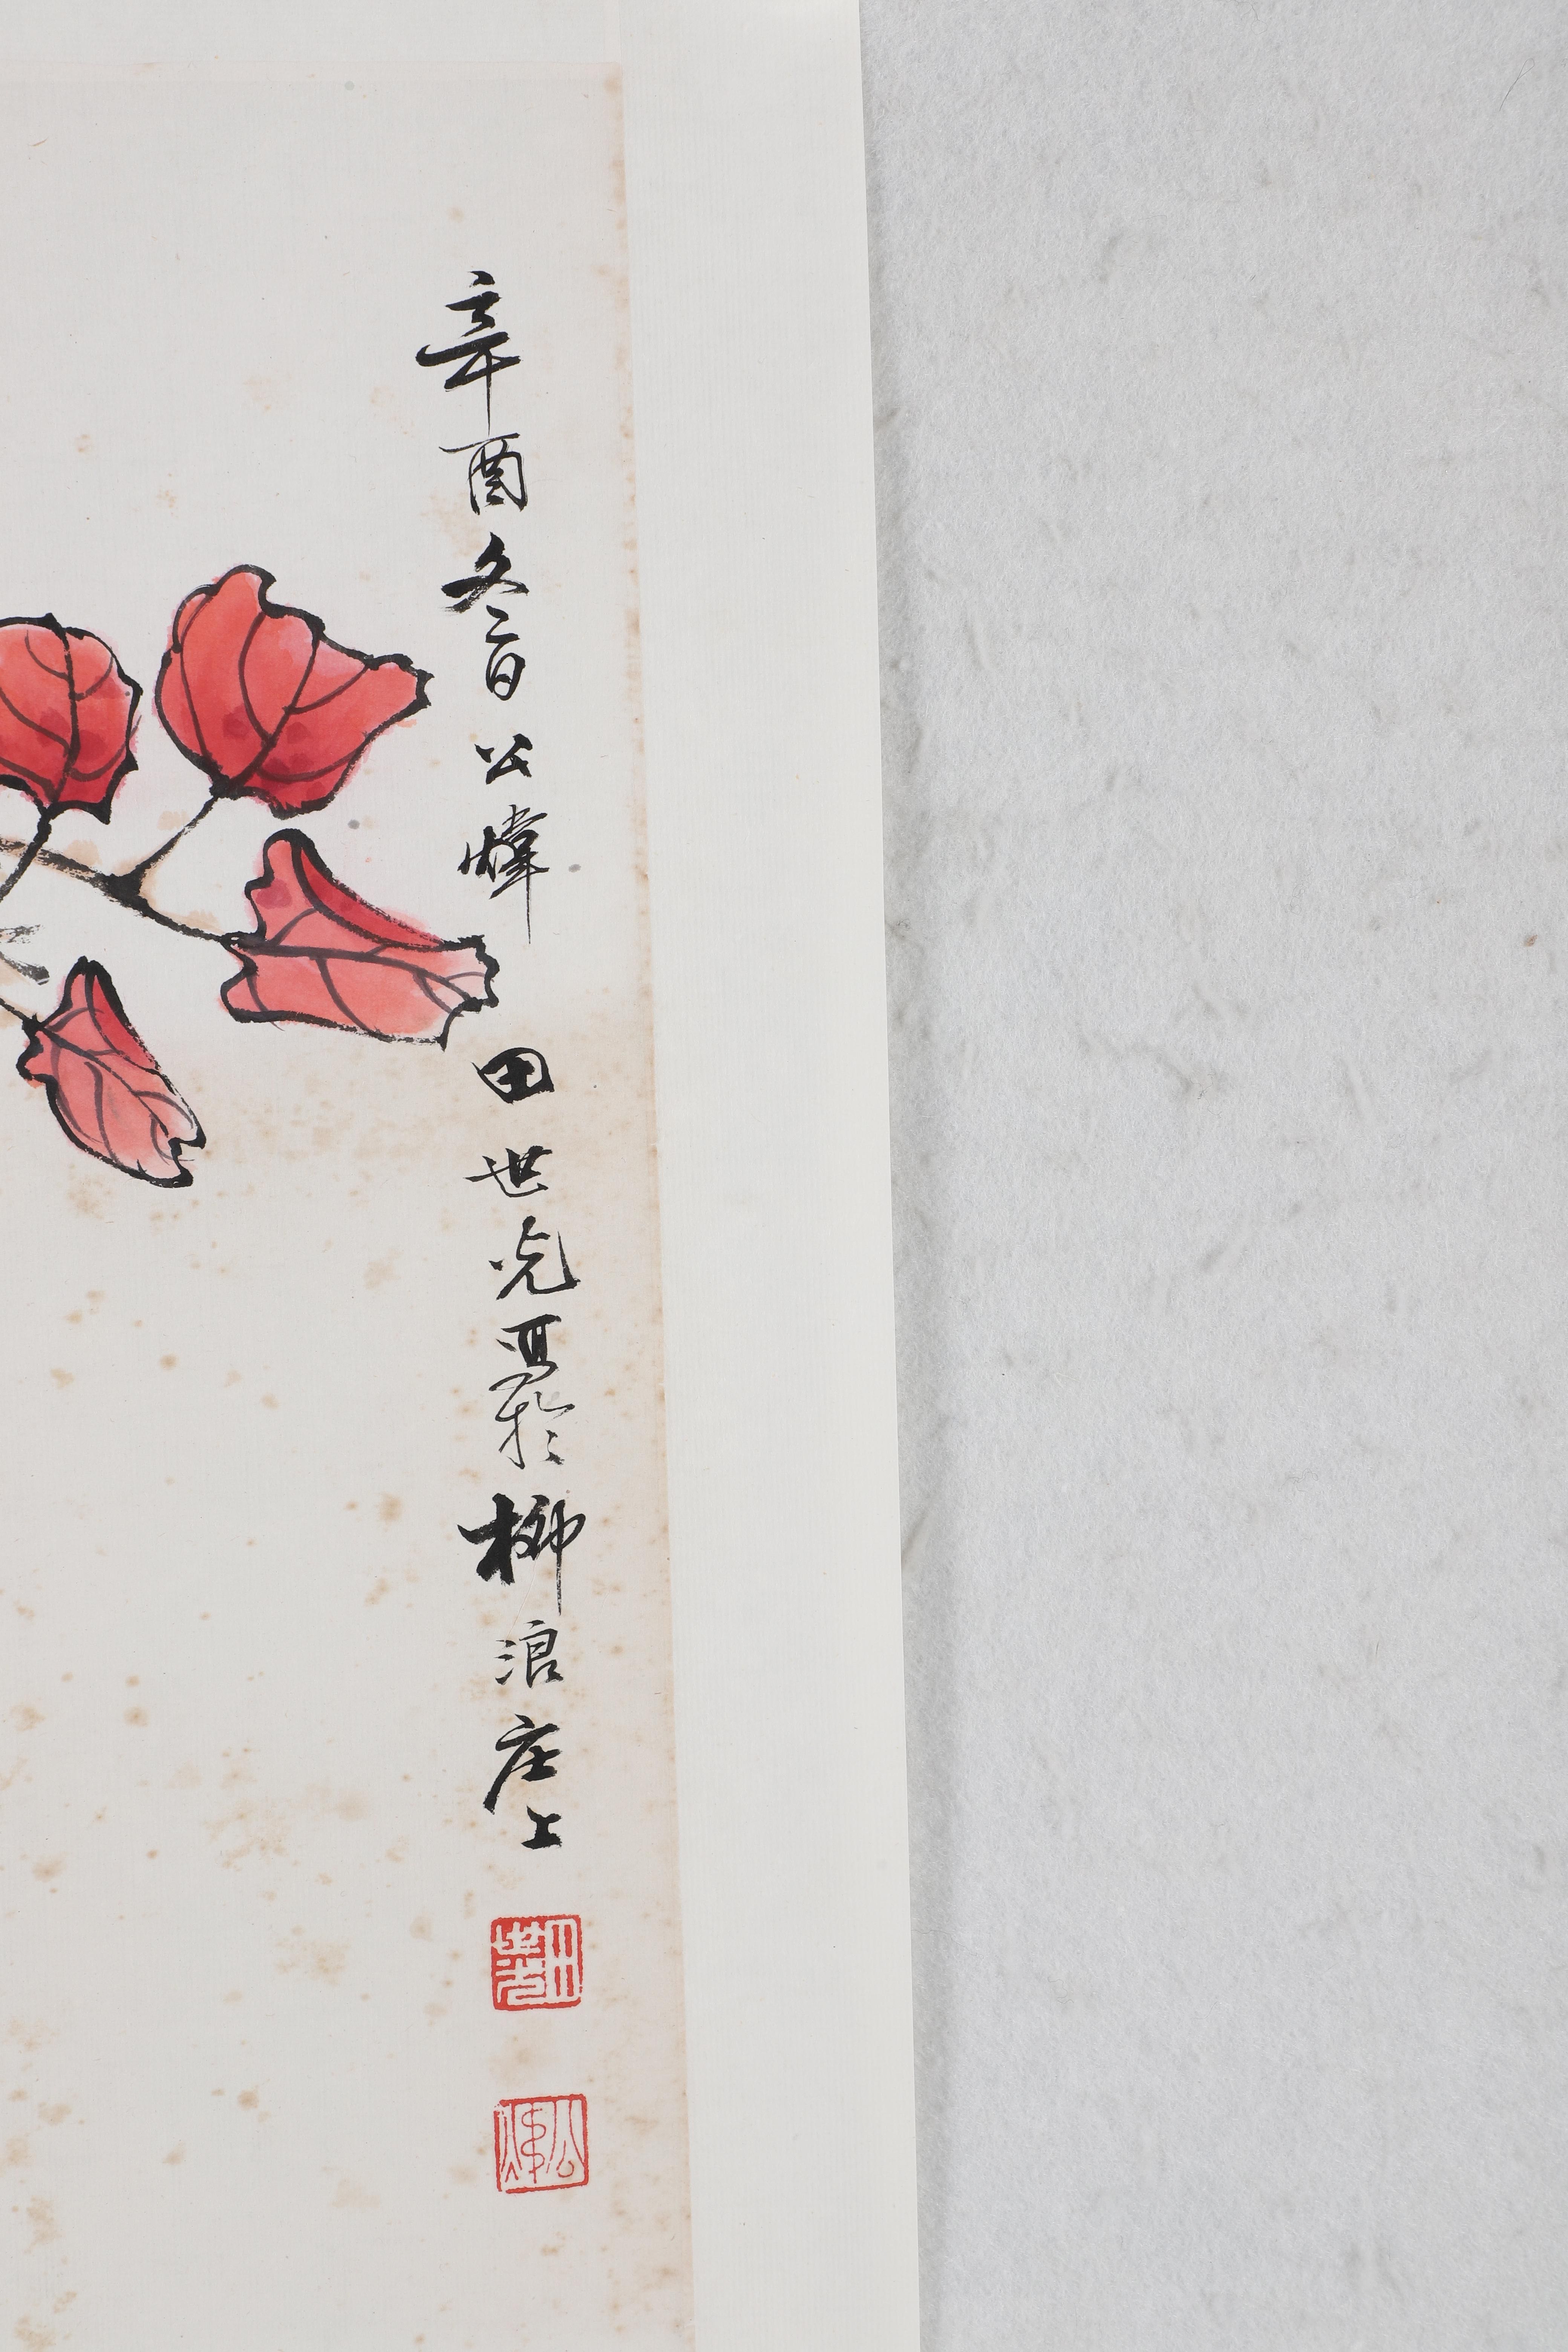 辛酉冬日公煒田世光写於柳浪庄上
田世光
公煒